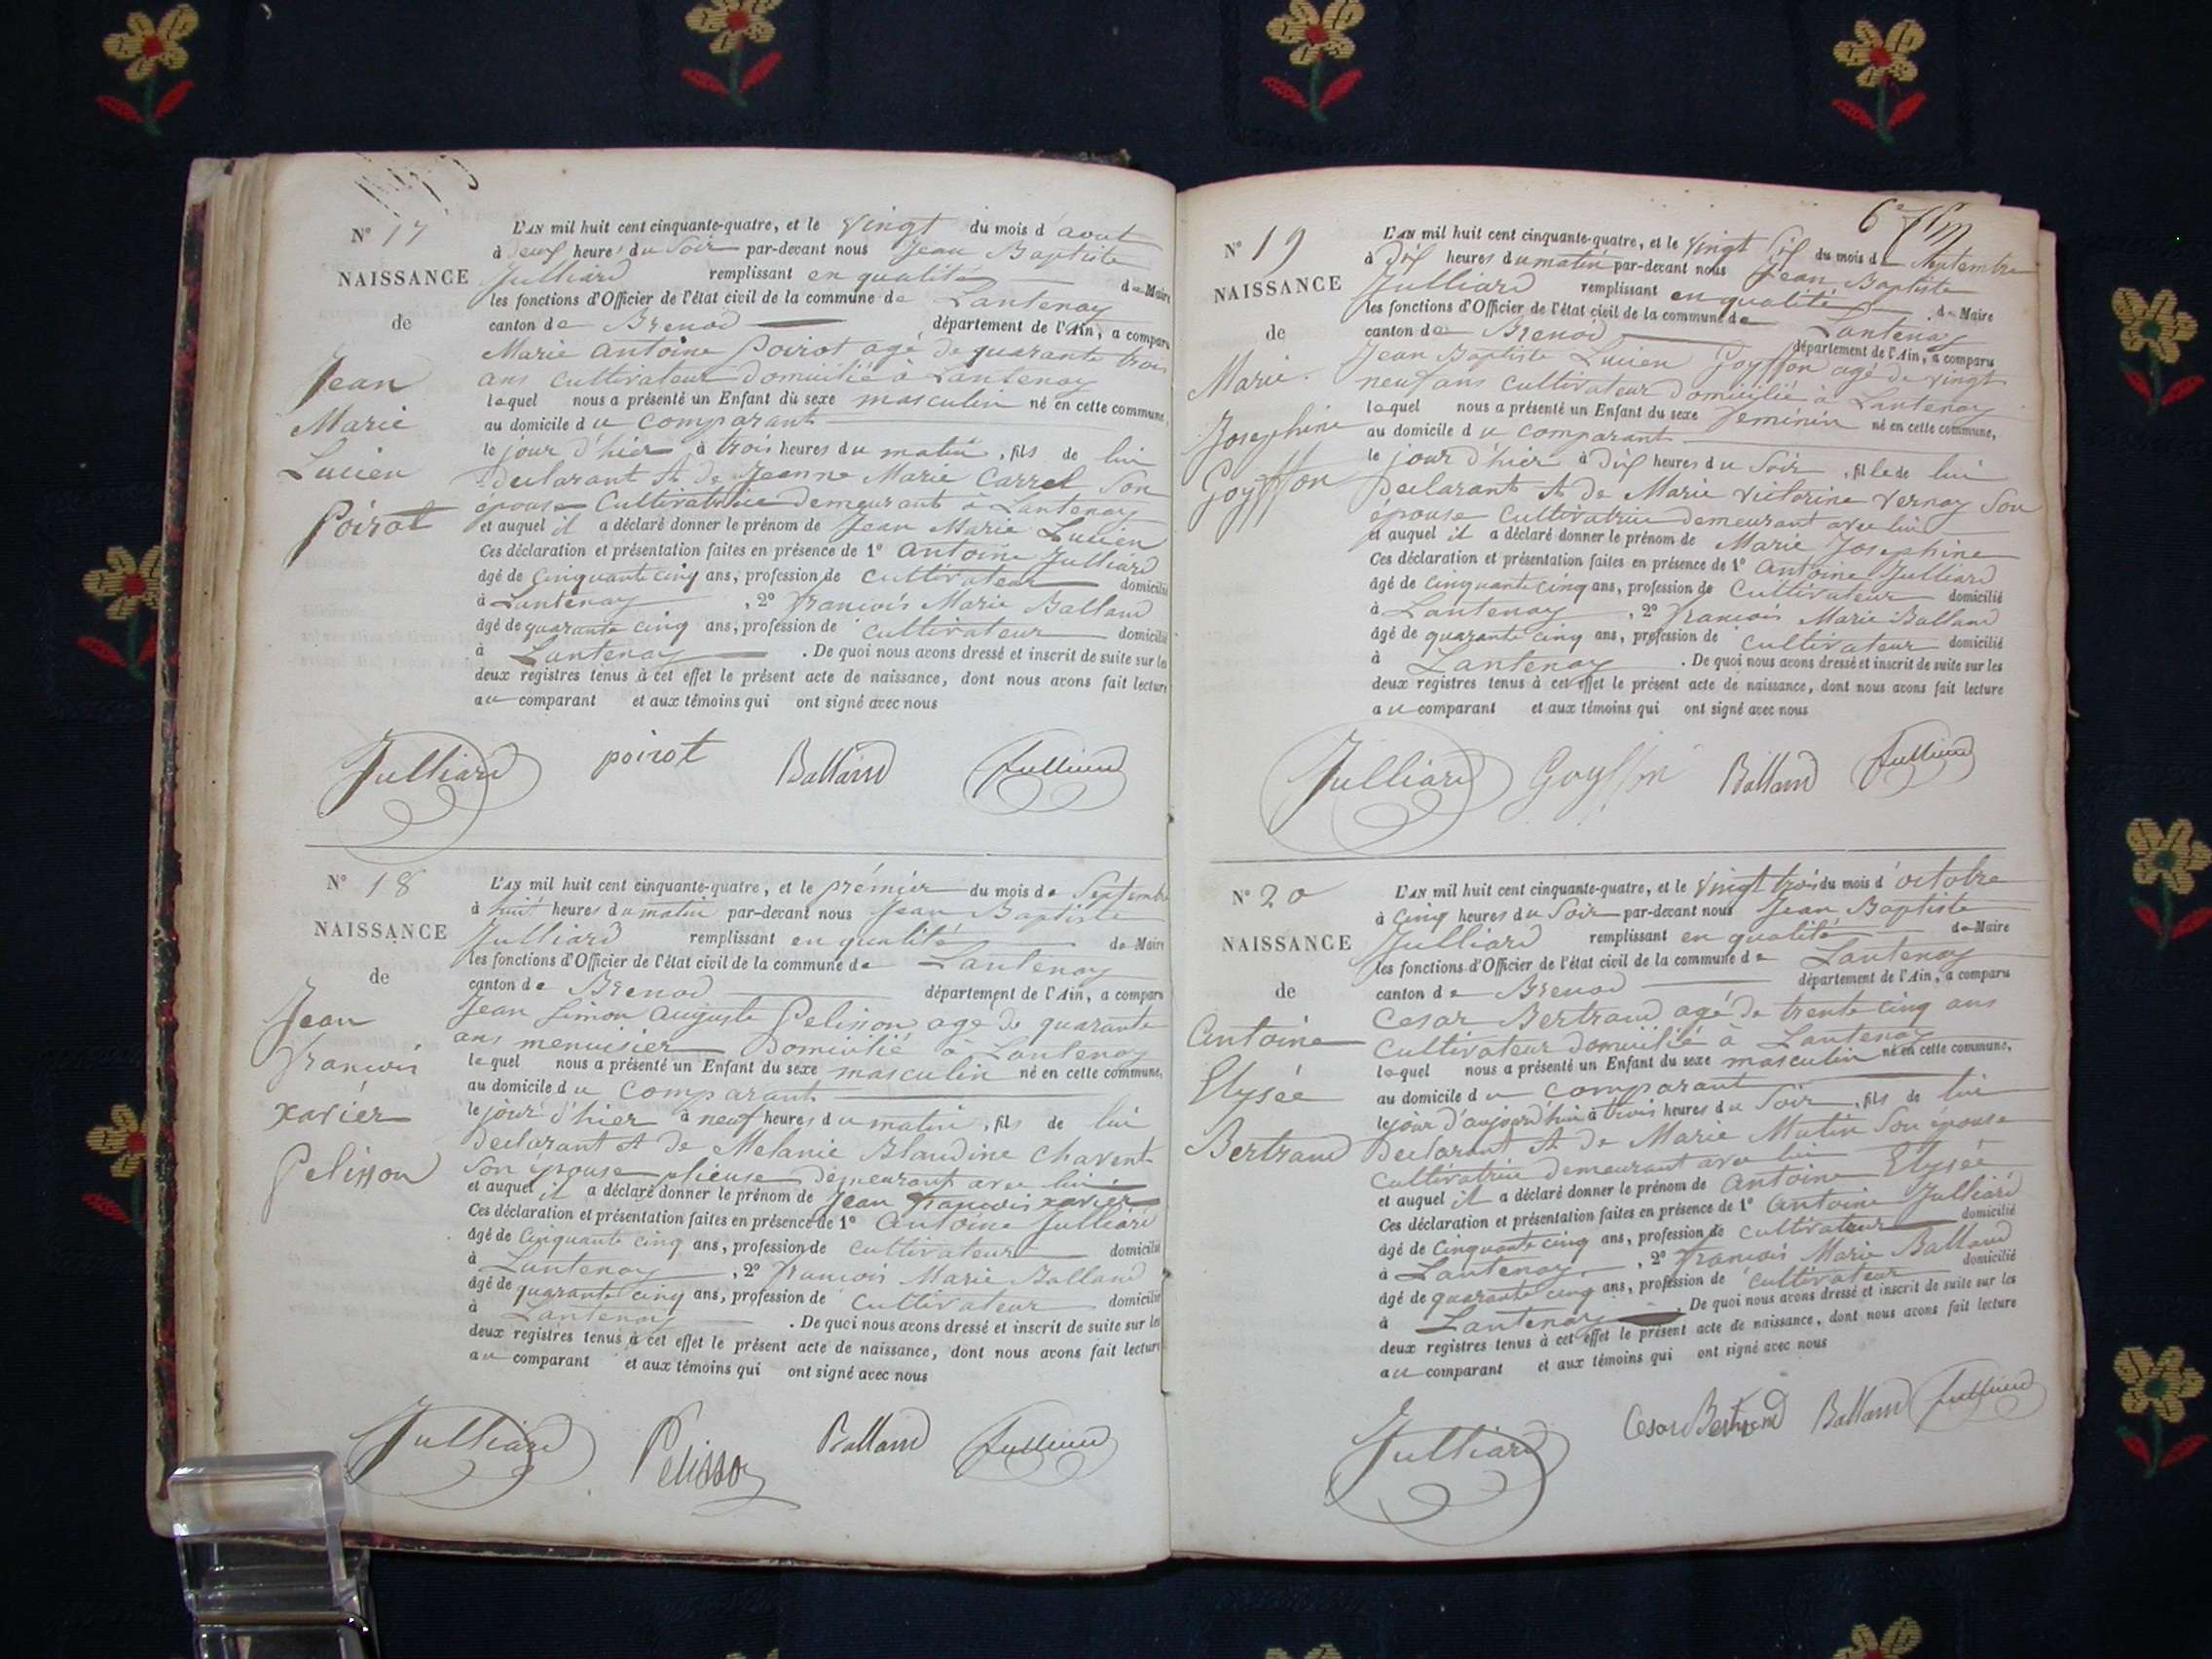 N° 17
NAISSANCE
de
Jean
Marie
Lucien
Poirot
L'AN mil huit cent cinquante-quatre, et le vingt du mois d'avout
à deux heures du Soir par-devant nous Jean Baptiste
Julliard remplissant en qualité de Maire
les fonctions d'Officier de l'état civil de la commune de Lantenay
canton de Brenod département de l'Ain, a comparu
Marie antoine Poirot agé de quarante trois
ans cultivateur domicilié à Lantenay
lequel nous a présenté un Enfant du sexe masculin né en cette commune,
au domicile du comparant
le jour d'hier à trois heures du matin, fils de lui
Declarant et de Jeanne Marie Carrel Son
épouse Cultivatrice demeurant à Lantenay
et auquel il a déclaré donner le prénom de Jean Marie Lucien
Ces déclaration et présentation faites en présence de 1° antoine Julliard
âgé de cinquante cinq ans, profession de cultivateur domicilié
à Lantenay, 2° françois Marie Balland
âgé de quarante cinq ans, profession de cultivateur domicilié
à Lantenay. De quoi nous avons dressé et inscrit de suite sur les
deux registres tenus à cet effet le présent acte de naissance, dont nous avons fait lecture
au comparant et aux témoins qui ont signé avec nous
Julliard poirot Balland Julliard
N° 18
NAISSANCE
de
Jean
françois
xavier
Pelisson
L'AN mil huit cent cinquante-quatre, et le prémier du mois de Septembre
à huit heures du matin par-devant nous Jean Baptiste
Julliard remplissant en qualité de Maire
les fonctions d'Officier de l'état civil de la commune de Lantenay
canton de Brenod département de l'Ain, a comparu
Jean Simon auguste Pelisson agé de quarante
ans menuisier domicilié à Lantenay
lequel nous a présenté un Enfant du sexe masculin né en cette commune,
au domicile du comparant
le jour d'hier à neuf heures du matin, fils de lui
Declarant et de Melanie Blandine Chavent
Son épouse plieuse demeurant avec lui
et auquel il a déclaré donner le prénom de Jean françois xavier
Ces déclaration et présentation faites en présence de 1° antoine Julliard
âgé de cinquante cinq ans, profession de cultivateur domicilié
à Lantenay, 2° françois Marie Balland
âgé de quarante cinq ans, profession de cultivateur domicilié
à Lantenay. De quoi nous avons dressé et inscrit de suite sur les
deux registres tenus à cet effet le présent acte de naissance, dont nous avons fait lecture
au comparant et aux témoins qui ont signé avec nous
Julliard Pelisson Balland Julliard
6e
N° 19
NAISSANCE
de
Marie
Josephine
Goyffon
L'AN mil huit cent cinquante-quatre, et le vingt Six du mois de Septembre
à dix heures du matin par-devant nous Jean Baptiste
Julliard remplissant en qualité de Maire
les fonctions d'Officier de l'état civil de la commune de Lantenay
canton de Brenod département de l'Ain, a comparu
Jean Baptiste Lucien Goyffon agé de vingt
neuf ans cultivateur domicilié à Lantenay
lequel nous a présenté un Enfant du sexe feminin né en cette commune,
au domicile du comparant
le jour d'hier à dix heures du Soir, fille de lui
Declarant et de Marie victorine Vernay Son
épouse Cultivatrice demeurant avec lui
et auquel il a déclaré donner le prénom de Marie Josephine
Ces déclaration et présentation faites en présence de 1° Antoine Julliard
âgé de cinquante cinq ans, profession de Cultivateur domicilié
à Lantenay, 2° françois Marie Balland
âgé de quarante cinq ans, profession de cultivateur domicilié
à Lantenay. De quoi nous avons dressé et inscrit de suite sur les
deux registres tenus à cet effet le présent acte de naissance, dont nous avons fait lecture
au comparant et aux témoins qui ont signé avec nous
Julliard Goyffon Balland Julliard
N° 20
NAISSANCE
de
Antoine
Elysée
Bertrand
L'AN mil huit cent cinquante-quatre, et le vingt trois du mois d'octobre
à cinq heures du Soir par-devant nous Jean Baptiste
Julliard remplissant en qualité de Maire
les fonctions d'Officier de l'état civil de la commune de Lantenay
canton de Brenod département de l'Ain, a comparu
Cesar Bertrand agé de trente cinq ans
Cultivateur domicilié à Lantenay
lequel nous a présenté un Enfant du sexe masculin né en cette commune,
au domicile du comparant
le jour d'aujourd'hui à trois heures du Soir, fils de lui
Declarant et de Marie Mutin Son épouse
Cultivatrice demeurant avec lui
et auquel il a déclaré donner le prénom de antoine Elysée
Ces déclaration et présentation faites en présence de 1° Antoine Julliard
âgé de cinquante cinq ans, profession de cultivateur domicilié
à Lantenay, 2° françois Marie Balland
âgé de quarante cinq ans, profession de cultivateur domicilié
à Lantenay. De quoi nous avons dressé et inscrit de suite sur les
deux registres tenus à cet effet le présent acte de naissance, dont nous avons fait lecture
au comparant et aux témoins qui ont signé avec nous
Julliard Cesar Bertrand Balland Julliard